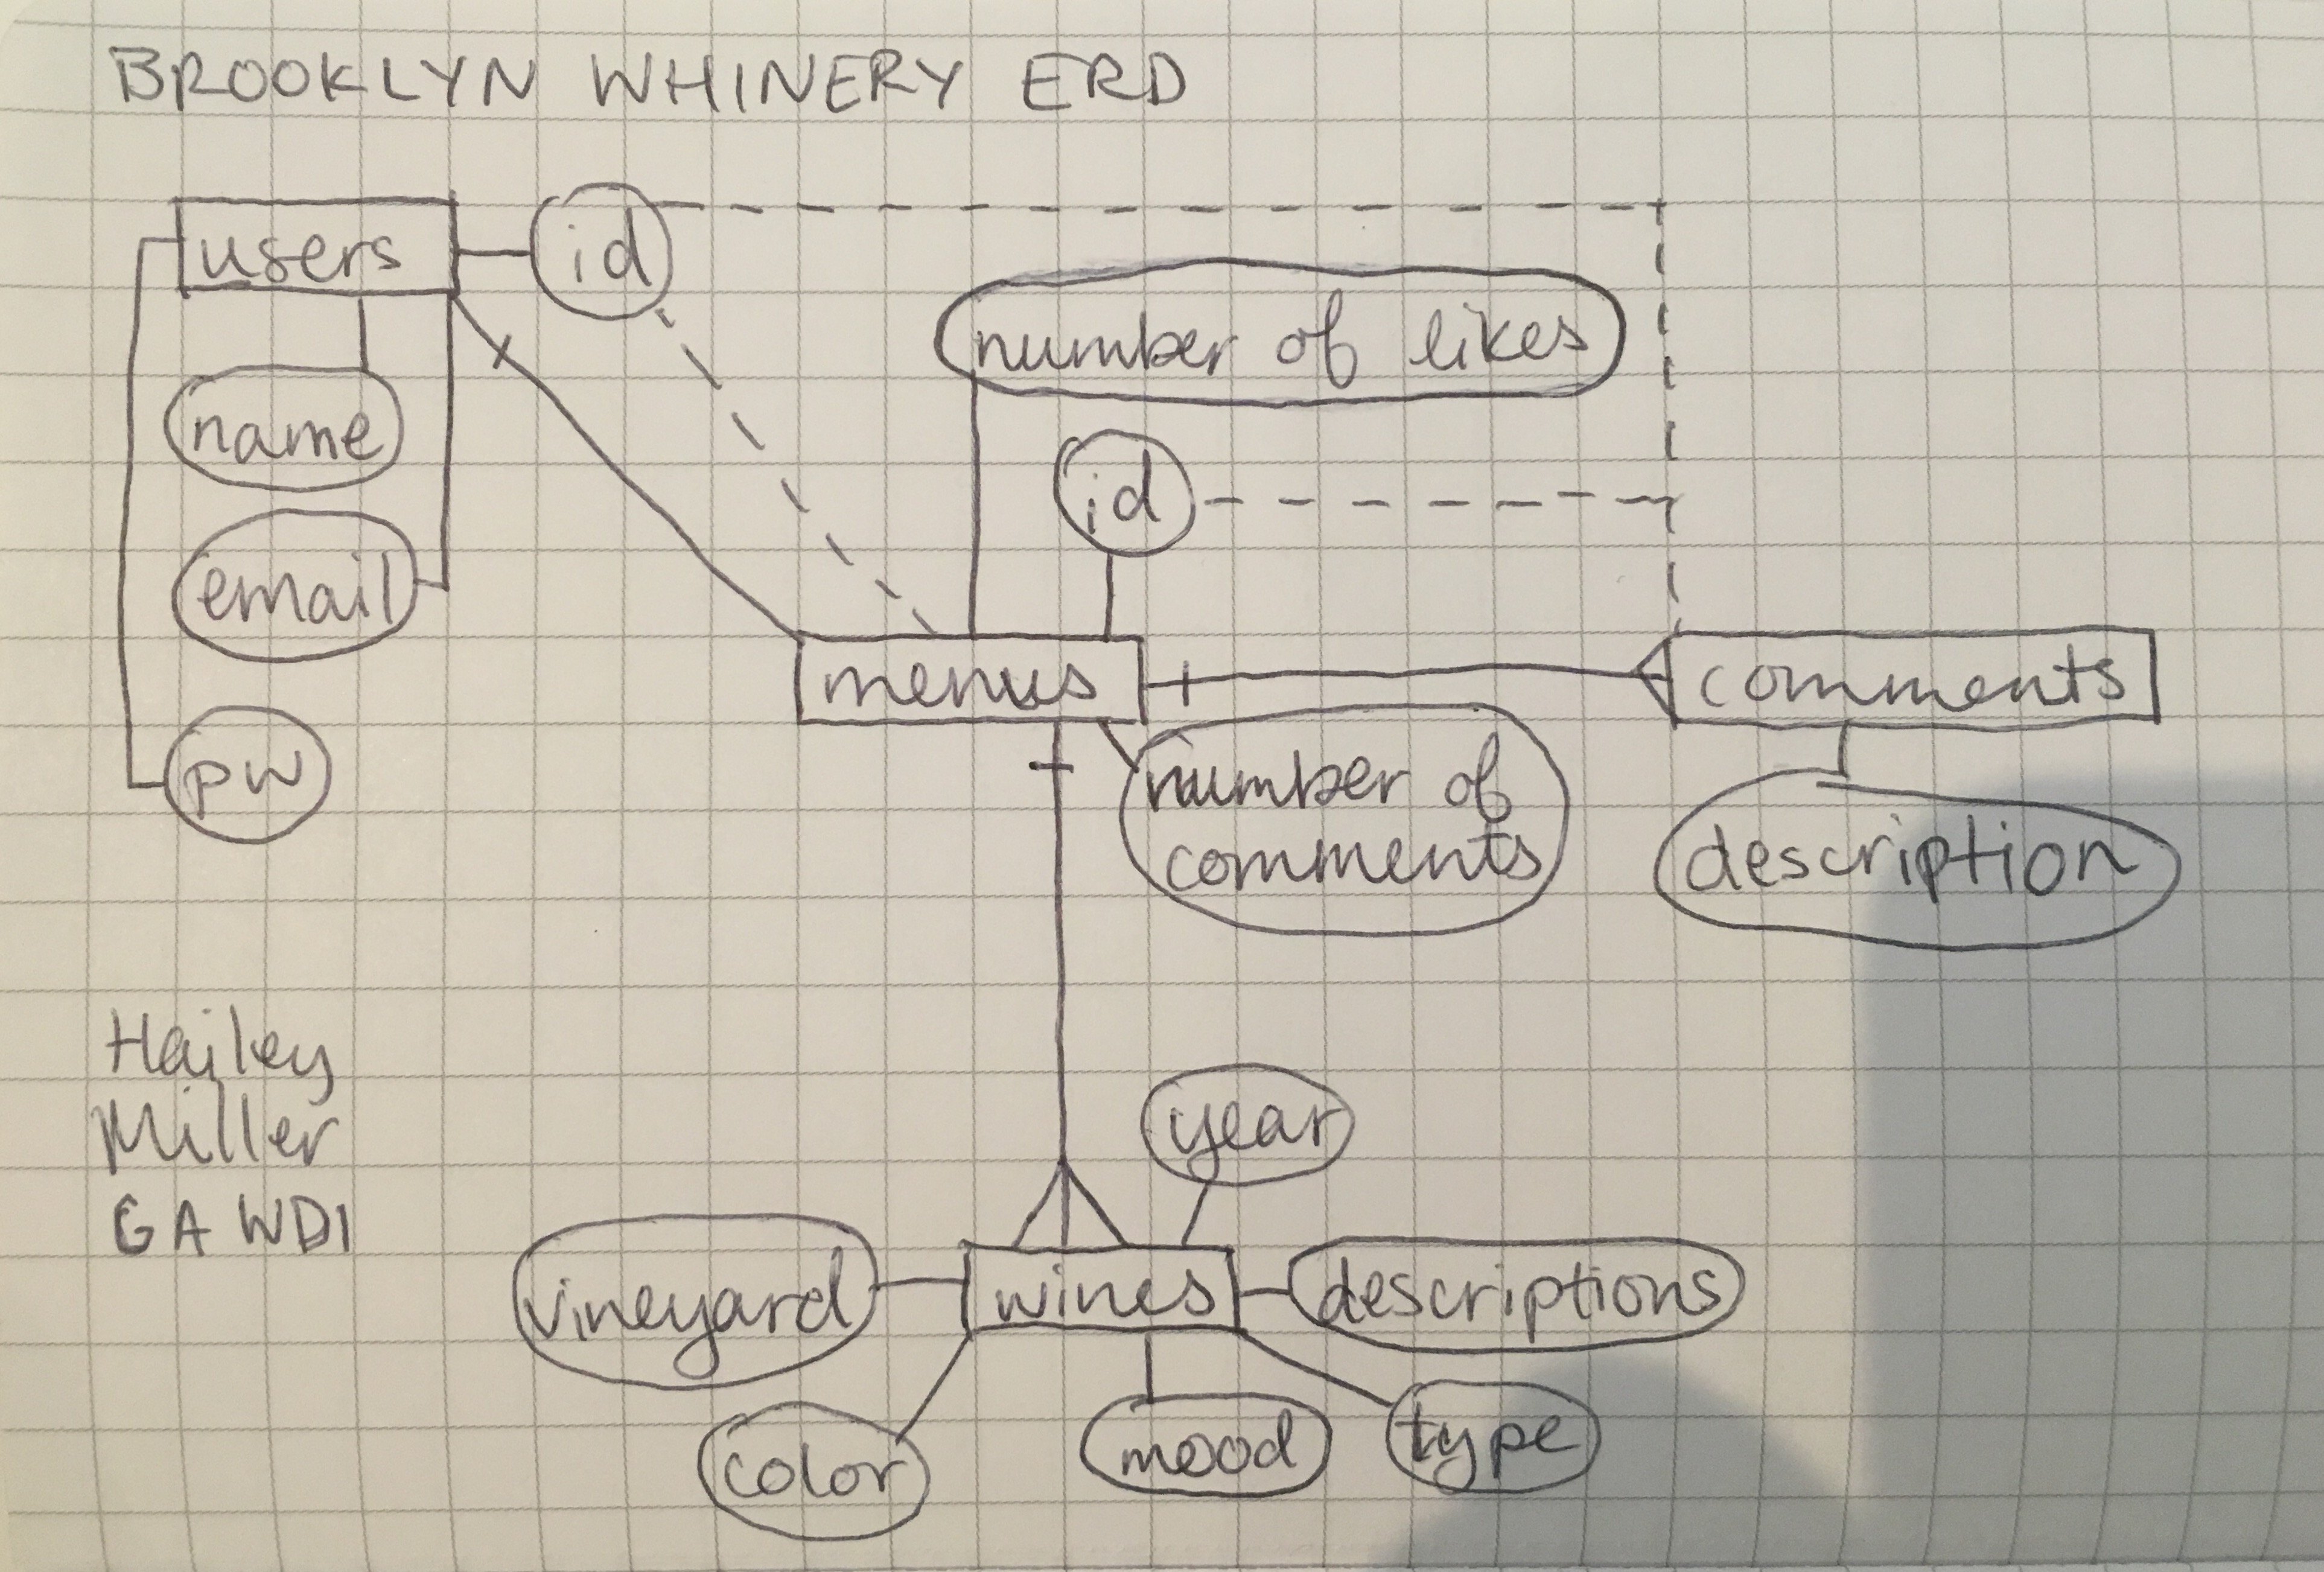 BROOKLYN WHINERY ERD
users
id
number of likes
name
id
email
menus
comments
pw
number of
comments
description
Hailey
Miller
GA WDI
year
vineyard
wines
descriptions
color
mood
type